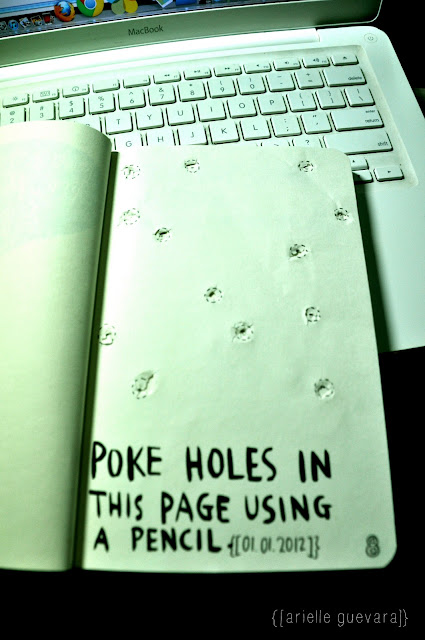 MacBook
delete
return
shift
POKE HOLES IN
THIS PAGE USING
A PENCIL {[01.01.2012]}
8
{[arielle guevara]}